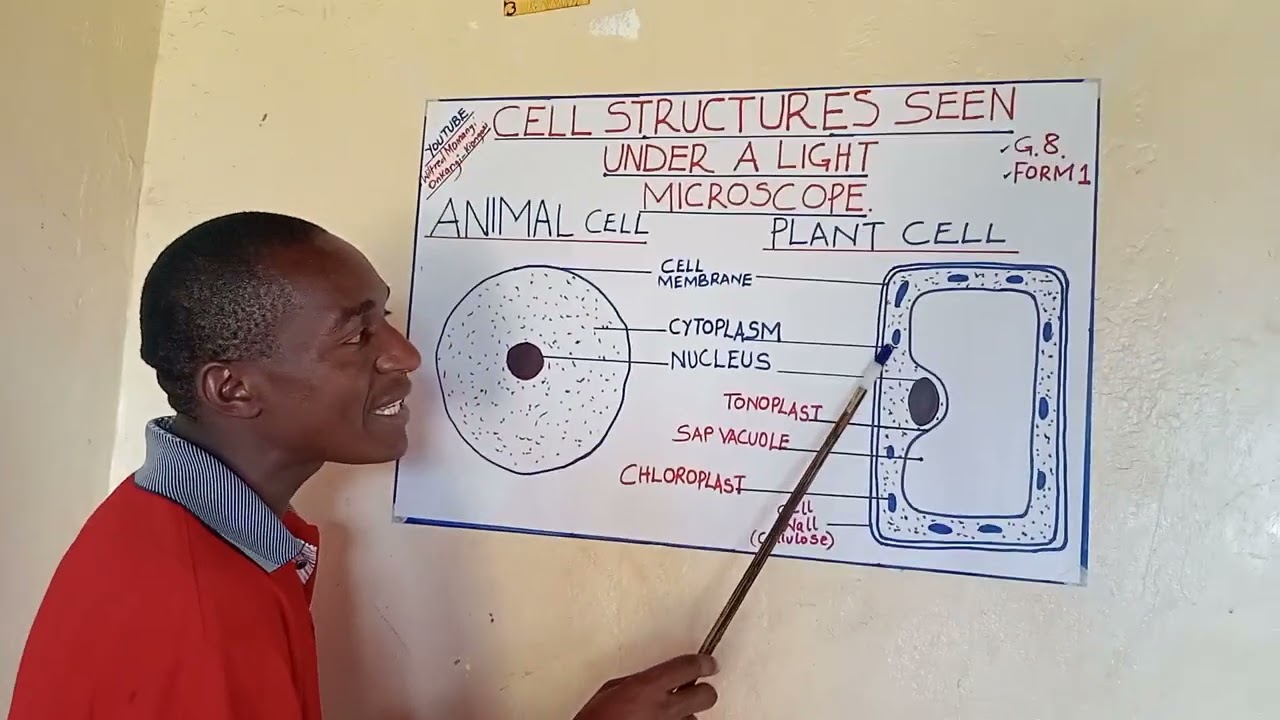 3
YOUTUBE
Wilfred Momanyi
Onkangi-Kiongosi
CELL STRUCTURES SEEN
UNDER A LIGHT
MICROSCOPE.
G.8.
FORM 1
ANIMAL CELL
PLANT CELL
CELL
MEMBRANE
CYTOPLASM
NUCLEUS
TONOPLAST
SAP VACUOLE
CHLOROPLAST
Cell
Wall
(Cellulose)